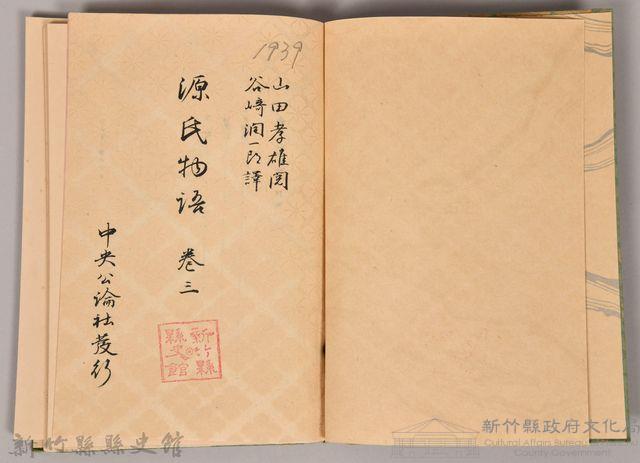 1939
山田孝雄閲
谷崎潤一郎譯
源氏物語 卷三
中央公論社發行
新竹縣
縣史館
新竹縣縣史館
新竹縣政府文化局
Cultural Affairs Bureau
County Government